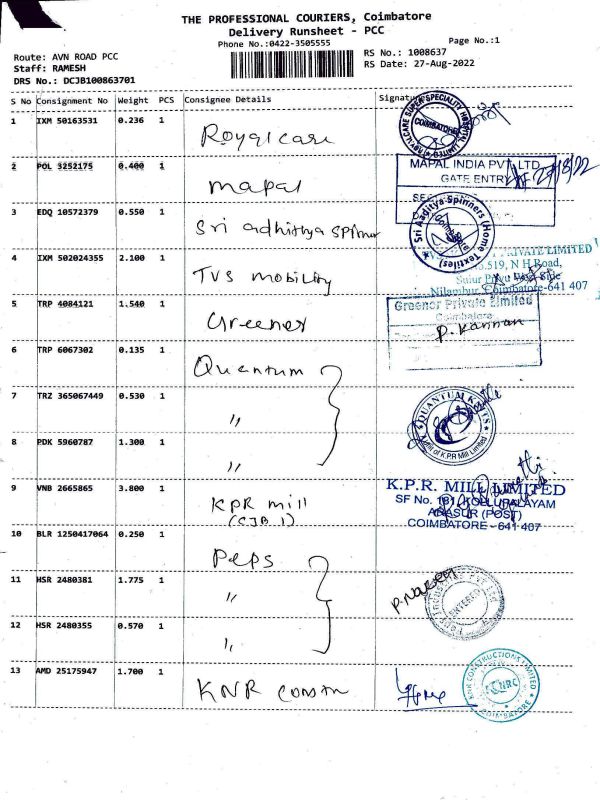 THE PROFESSIONAL COURIERS, Coimbatore
Delivery Runsheet - PCC
Phone No.:0422-3505555
Page No.:1
Route: AVN ROAD PCC
RS No.: 1008637
Staff: RAMESH
RS Date: 27-Aug-2022
DRS No.: DCJB100863701
S No Consignment No Weight PCS Consignee Details Signature
1 IXM 50163531 0.236 1 Royalcare
COIMBATORE
2 POL 3252175 0.400 1 Mapal
MAPAL INDIA PVT. LTD.
GATE ENTRY
27/8/22
3 EDQ 10572379 0.550 1 Sri adhithya spinner
Sri Aaditya Spinners (Home Textiles)
Coimbatore
4 IXM 502024355 2.100 1 TVS mobility
PRIVATE LIMITED
.519, N H Road,
Nilambur, Coimbatore-641 407
5 TRP 4084121 1.540 1 Greenex
Greenor Private Limited
Coimbatore
P. Kannan
6 TRP 6067302 0.135 1 Quantum
7 TRZ 365067449 0.530 1 〃
QUANTUM KNITS
Unit of K.P.R Mill Limited
8 PDK 5960787 1.300 1 〃
9 VNB 2665865 3.800 1 KPR mill
(CJB 1)
K.P.R. MILL LIMITED
SF No. 181, KOLLUPALAYAM
ARASUR (POST)
COIMBATORE - 641 407
10 BLR 1250417064 0.250 1 Peps
11 HSR 2480381 1.775 1 〃
ENTERED
12 HSR 2480355 0.570 1 〃
13 AMD 25175947 1.700 1 KNR constn
KNR CONSTRUCTIONS LIMITED
KNRC
COIMBATORE